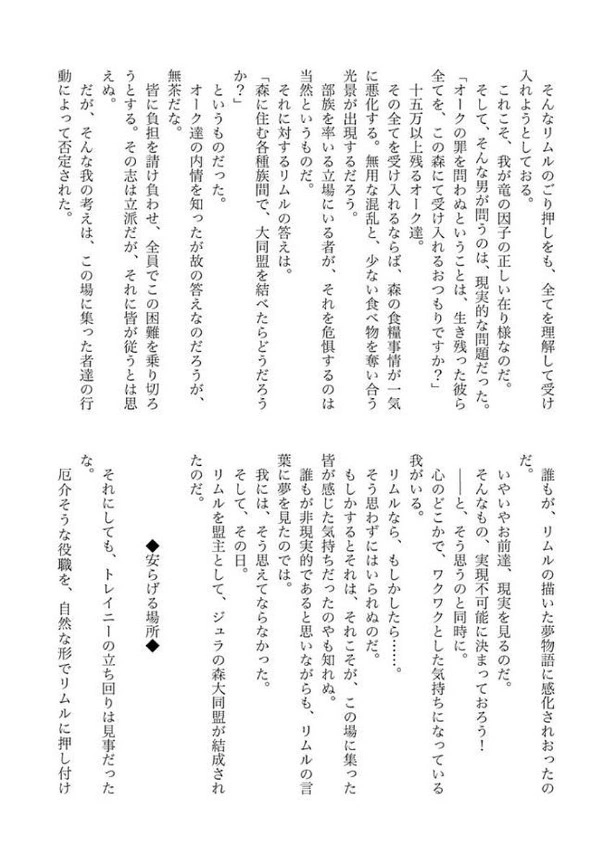 そんなリムルのごり押しをも、全てを理解して受け
入れようとしておる。
　これこそ、我が竜の因子の正しい在り様なのだ。
　そして、そんな男が問うのは、現実的な問題だった。
「オークの罪を問わぬということは、生き残った彼ら
全てを、この森にて受け入れるおつもりですか？」
　十五万以上残るオーク達。
　その全てを受け入れるならば、森の食糧事情が一気
に悪化する。無用な混乱と、少ない食べ物を奪い合う
光景が出現するだろう。
　部族を率いる立場にいる者が、それを危惧するのは
当然というものだ。
　それに対するリムルの答えは。
「森に住む各種族間で、大同盟を結べたらどうだろう
か？」
　というものだった。
　オーク達の内情を知ったが故の答えなのだろうが、
無茶だな。
　皆に負担を請け負わせ、全員でこの困難を乗り切ろ
うとする。その志は立派だが、それに皆が従うとは思
えぬ。
　だが、そんな我の考えは、この場に集った者達の行
動によって否定された。
　誰もが、リムルの描いた夢物語に感化されおったの
だ。
　いやいやお前達、現実を見るのだ。
　そんなもの、実現不可能に決まっておろう！
　――と、そう思うのと同時に。
　心のどこかで、ワクワクとした気持ちになっている
我がいる。
　リムルなら、もしかしたら……。
　そう思わずにはいられぬのだ。
　もしかするとそれは、それこそが、この場に集った
皆が感じた気持ちだったのやも知れぬ。
　誰もが非現実的であると思いながらも、リムルの言
葉に夢を見たのでは。
　我には、そう思えてならなかった。
　そして、その日。
　リムルを盟主として、ジュラの森大同盟が結成され
たのだ。
◆安らげる場所◆
　それにしても、トレイニーの立ち回りは見事だった
な。
　厄介そうな役職を、自然な形でリムルに押し付け